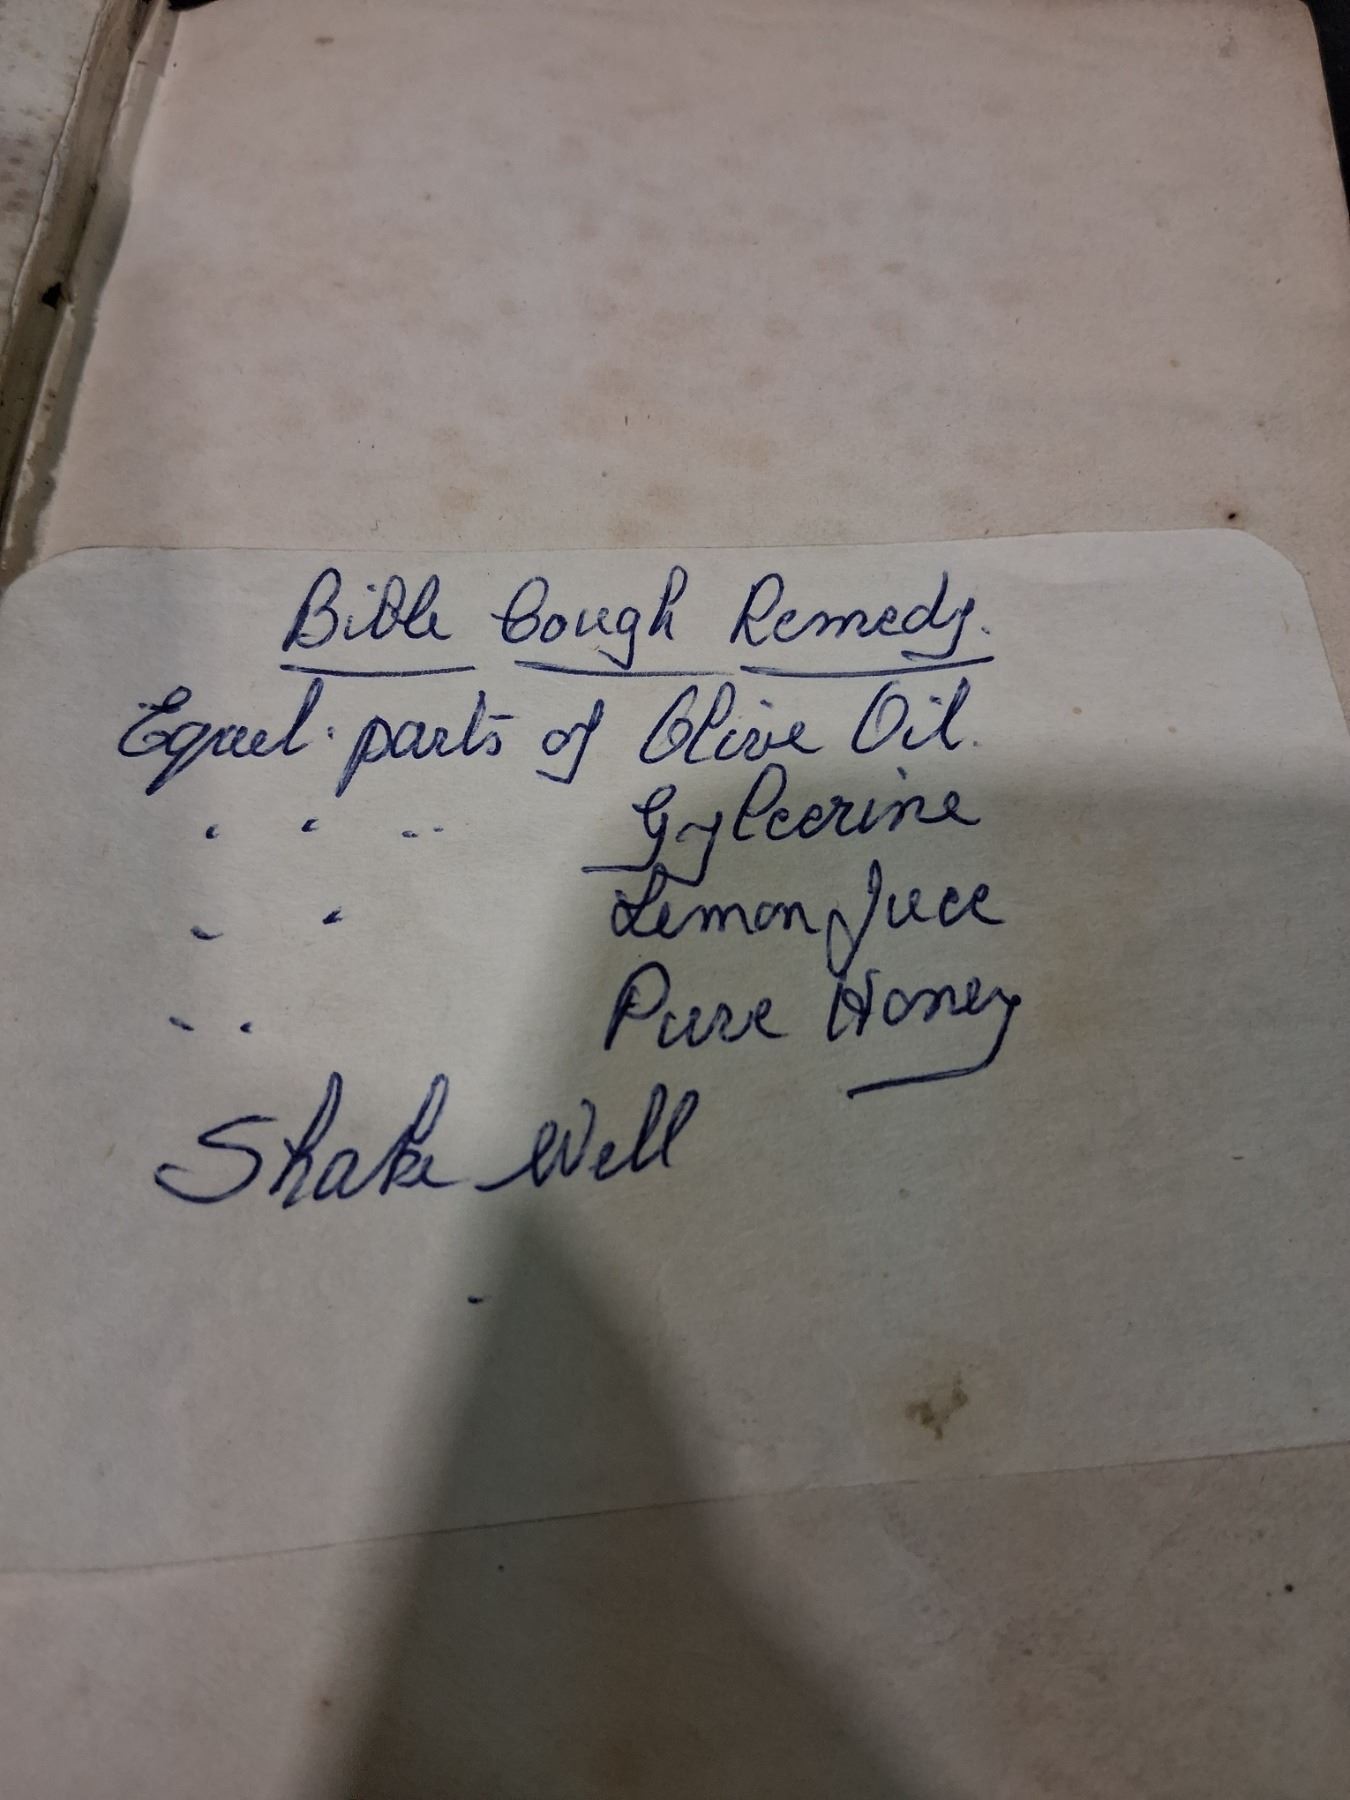 Bible Cough Remedy.
Equal parts of Olive Oil.
" " " Gylcerine
" " Lemon Juce
" " Pure Honey
Shake Well